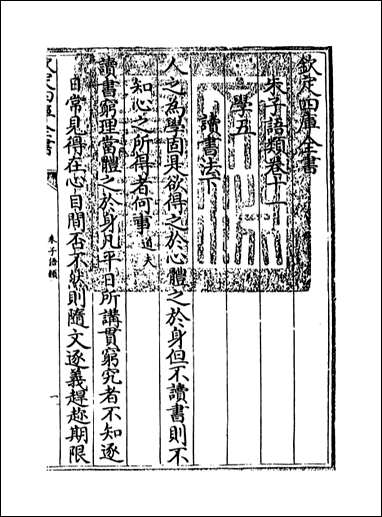 欽定四庫全書
朱子語類卷十一
學五
讀書法下
人之為學固是欲得之於心體之於身但不讀書則不
知心之所得者何事道夫
讀書窮理當體之於身凡平日所講貫窮究者不知逐
日常見得在心目間否不然則隨文逐義趕趂期限
欽定四庫全書
朱子語類
一